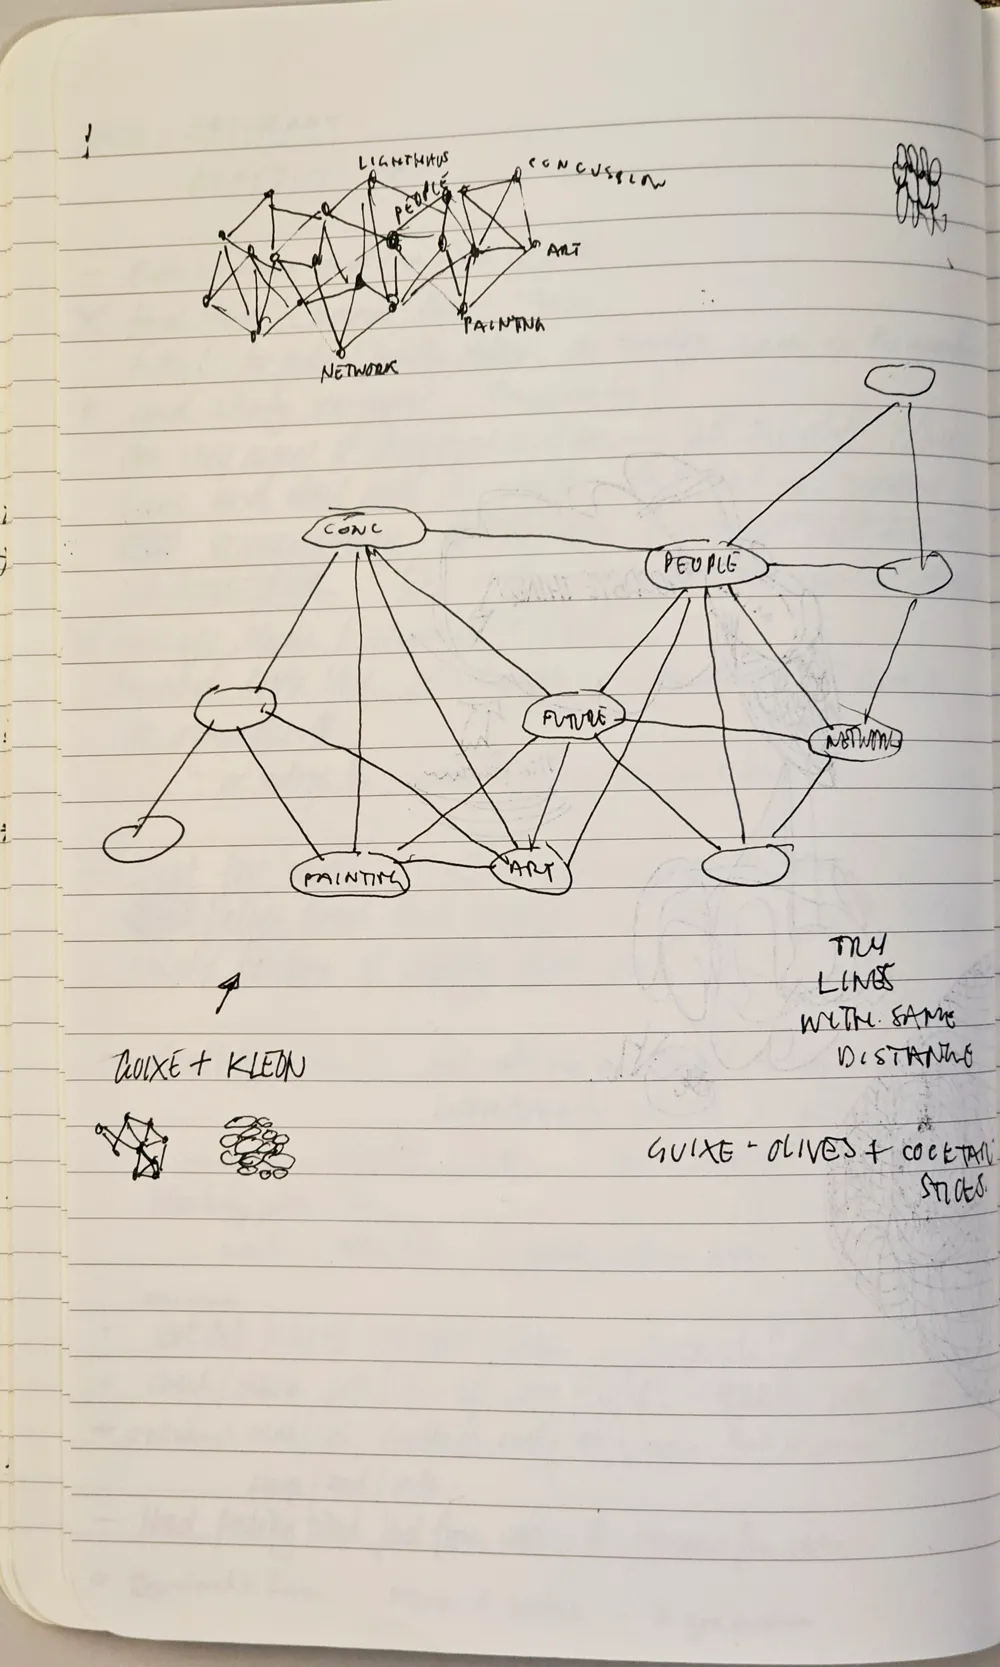 LIGHTHAUS
CONCUSSLOW
PEOPLE
ART
PAINTNG
NETWORK
CONC
PEOPLE
FUTURE
NETWORK
PAINTING
ART
TRY
LINES
WITH SAME
DISTANCE
GUIXE + KLEON
GUIXE - OLIVES + COCKTAIL
STICKS.